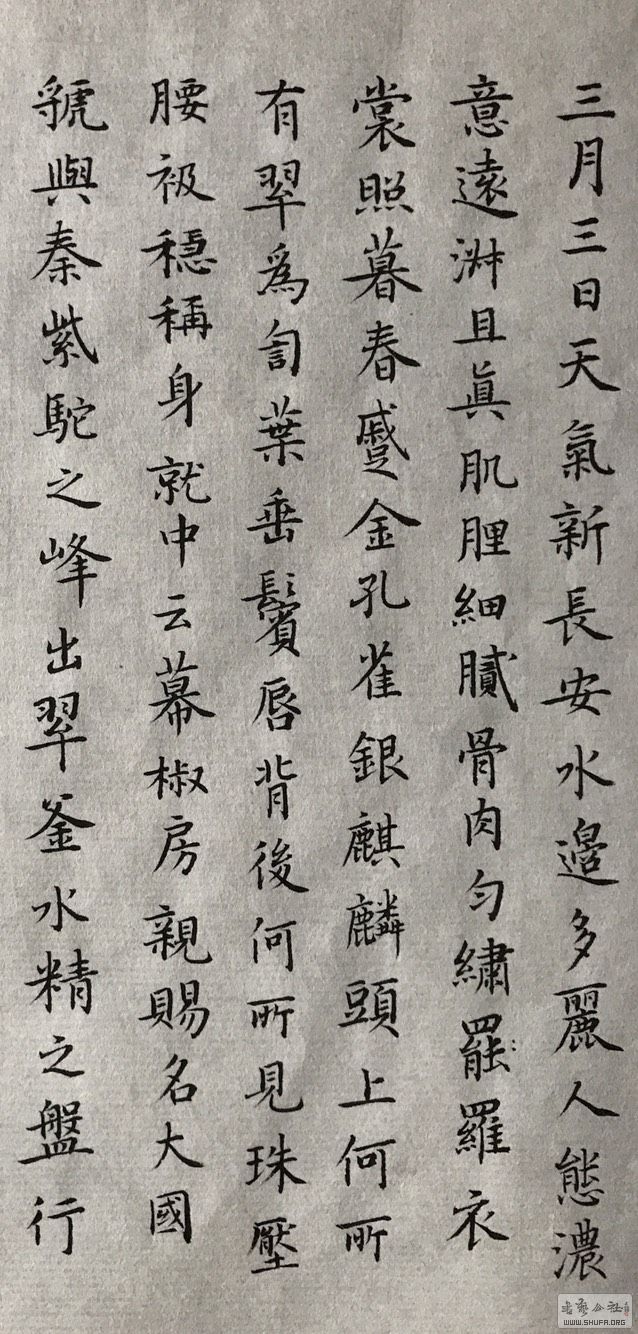 三月三日天氣新長安水邊多麗人態濃
意遠淋且真肌理細膩骨肉勻繡罷羅衣
裳照暮春蹙金孔雀銀麒麟頭上何所
有翠為匎葉垂鬢唇背後何所見珠壓
腰衱穩稱身就中云幕椒房親賜名大國
虢與秦紫駝之峰出翠釜水精之盤行
書藝公社
WWW.SHUFA.ORG